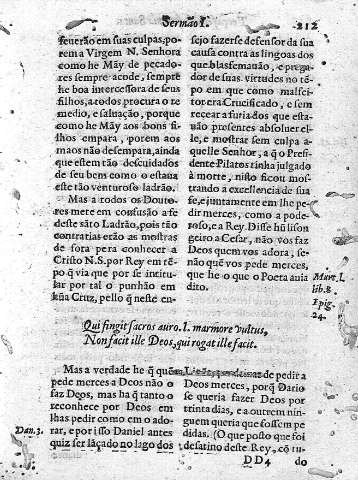 Sermão I.
212
seuerão em suas culpas, po-
rem a Virgem N. Senhora
como he Mãy de peçado-
res sempre acode, sempre
he boa intercessora de seus
filhos, a todos procura o re-
medio, e saluação, porque
como he Mãy aos bons fi-
lhos empara, porem aos
maos não desempara, ainda
que estem tão descuidados
de seu bem como o estaua
este tão venturoso ladrão.
Mas a todos os Douto-
res mete em confusão a fé
deste são Ladrão, pois tão
contrarias erão as mostras
de fora pera conhecer a
Cristo N.S. por Rey em tẽ-
po q̃ via que por se intitu-
lar por tal o punhão em
hũa Cruz, pello q̃ neste en-
sejo fazerse defensor da sua
causa contra as lingoas dos
que blasfemauão, e prega-
dor de suas virtudes no tẽ-
po em que como malfei-
tor era Crucificado, e sem
recear a furia dos que esta-
uão presentes absoluer el-
le, e mostrar sem culpa a-
quelle Senhor, a q̃ o Presi-
dente Pilatos tinha julgado
à morte, nisto ficou mos-
trando a excellencia de sua
fe, e juntamente em lhe pe-
dir merces, como a pode-
roso, e a Rey. Disse hũ lison
geiro a Cesar, não vos faz
Deos quem vos adora, se-
não quẽ vos pede merces,
que he o que o Poeta auia
dito.
Mart. l.
lib. 8.
Epig.
24.
Qui fingit sacros auro. l. marmore vultus,
Non facit ille Deos, qui rogat ille facit.
Mas a verdade he q̃ quẽ
pede merces a Deos não o
faz Deos, mas ha q̃ tanto o
reconhece por Deos em
lhas pedir como em o ado-
rar, e por isso Daniel antes
quiz ser lãçado no lago dos
Dan. 3.
de pedir a
Deos merces, porq̃ Dario
se queria fazer Deos por
trinta dias, e a outrem nin-
guem queria que fossem pe
didas. (O que posto que foi
desatino deste Rey, cõ tu-
DD4
do